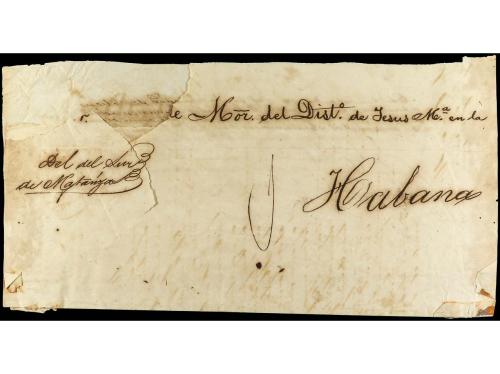 r. le Mor. del Dist.º de Jesus M.ª en la
Del del Sur
de Matánza
Habana